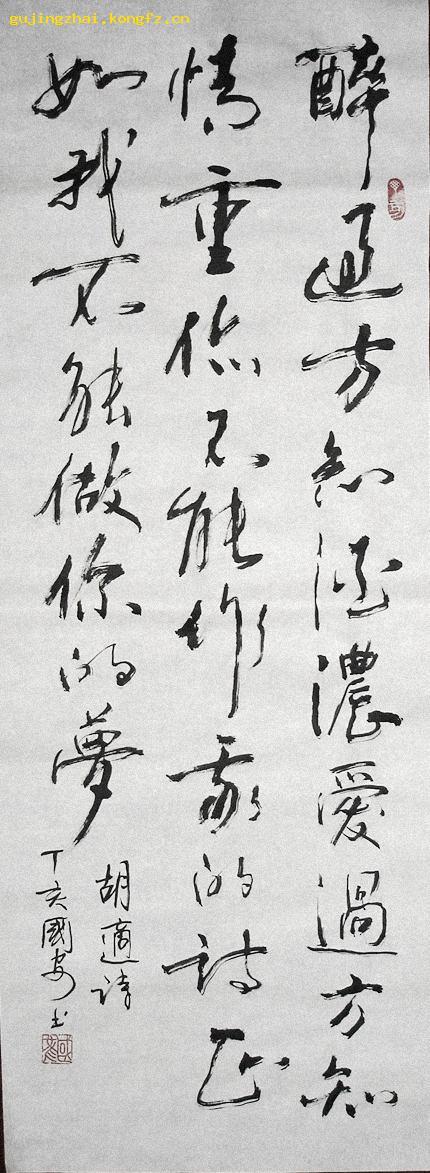 gujingzhai.kongfz.cn
醉過方知酒濃愛過方知
情重你不能作我的詩正
如我不能做你的夢
胡適詩
丁亥國安书